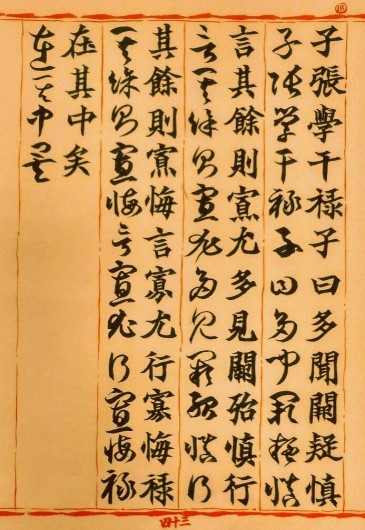 子張學干祿子曰多聞闕疑慎
子張學干祿子曰多聞闕疑慎
言其餘則寡尤多見闕殆慎行
言其餘則寡尤多見闕殆慎行
其餘則寡悔言寡尤行寡悔祿
其餘則寡悔言寡尤行寡悔祿
在其中矣
在其中矣
三十四